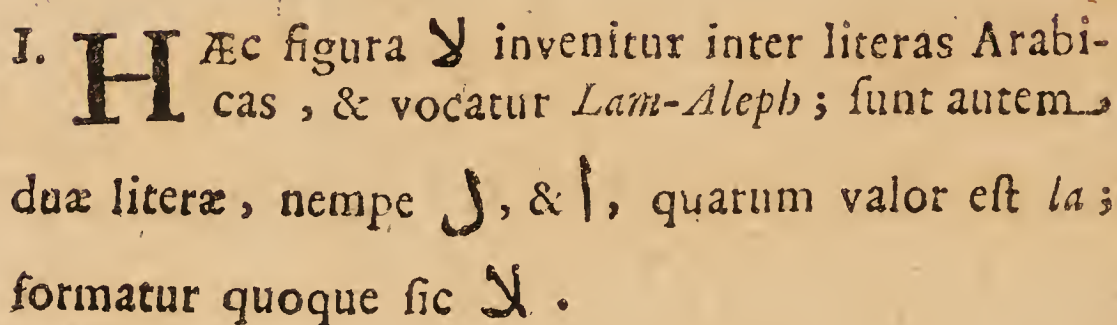 I. HÆc figura لا invenitur inter literas Arabi-
cas , & vocatur Lam-Aleph ; ſunt autem
duæ literæ , nempe ل , & ا , quarum valor eſt la ;
formatur quoque ſic لا .